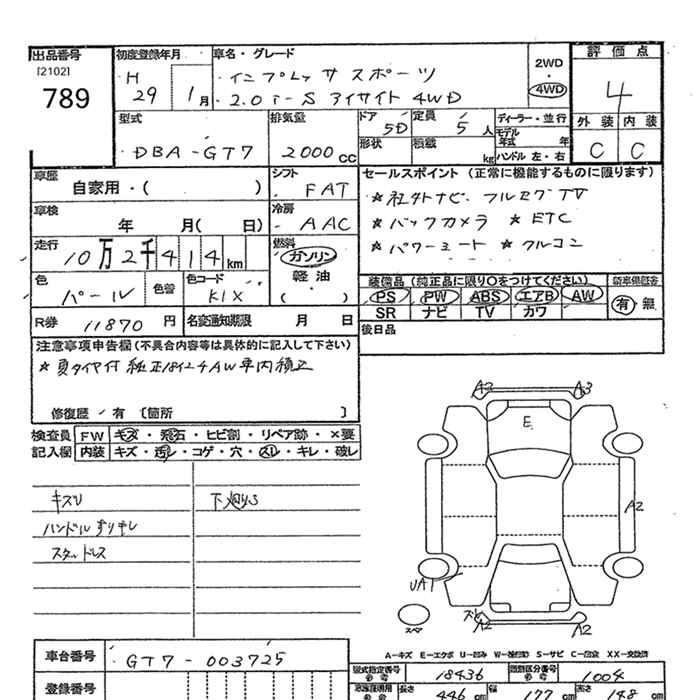 出品番号
[2102]
789
初度登録年月
H
29 1月
車名・グレード
インプレッサ スポーツ
2.0i-S アイサイト 4WD
2WD
・
4WD
評価点
4
外装 内装
C C
型式
DBA-GT7
排気量
2000cc
ドア
5D
定員
5人
形状
積載
kg
ディーラー・並行
モデル
年式 年
ハンドル 左・右
車歴
自家用・( )
シフト
FAT
車検
年 月( 日)
冷房
AAC
走行
10万2千414km
燃料
ガソリン
軽油
( )
色
パール
色替
色コード
K1X
R券 11870円
名変通知期限 月 日
セールスポイント (正常に機能するものに限ります)
★社外ナビ、フルセグTV
★バックカメラ ★ETC
★パワーシート ★クルコン
装備品(純正品に限り○をつけてください)
PS PW ABS エアB AW
SR ナビ TV カワ
新車保証書
有・無
後日品
注意事項申告欄(不具合内容等は具体的に記入して下さい)
★夏タイヤ付 純正18インチAW車内積込
修復歴・有 〔箇所 〕
検査員
記入欄
FW キズ・飛石・ヒビ割・リペア跡・×要
内装 キズ・汚レ・コゲ・穴・スレ・キレ・破レ
キズり
下廻りS
ハンドルすりキレ
スタッドレス
A2 A3
E
A2
UA1
スペア
A2 A2
A-キズ E-エクボ U-凹み W-波(板) S-サビ C-腐食 XX-交換済
車台番号
GT7-003725
登録番号
型式指定番号
参考
18436
類別区分番号
参考
1004
長さ
446cm
幅
177cm
高さ
148cm